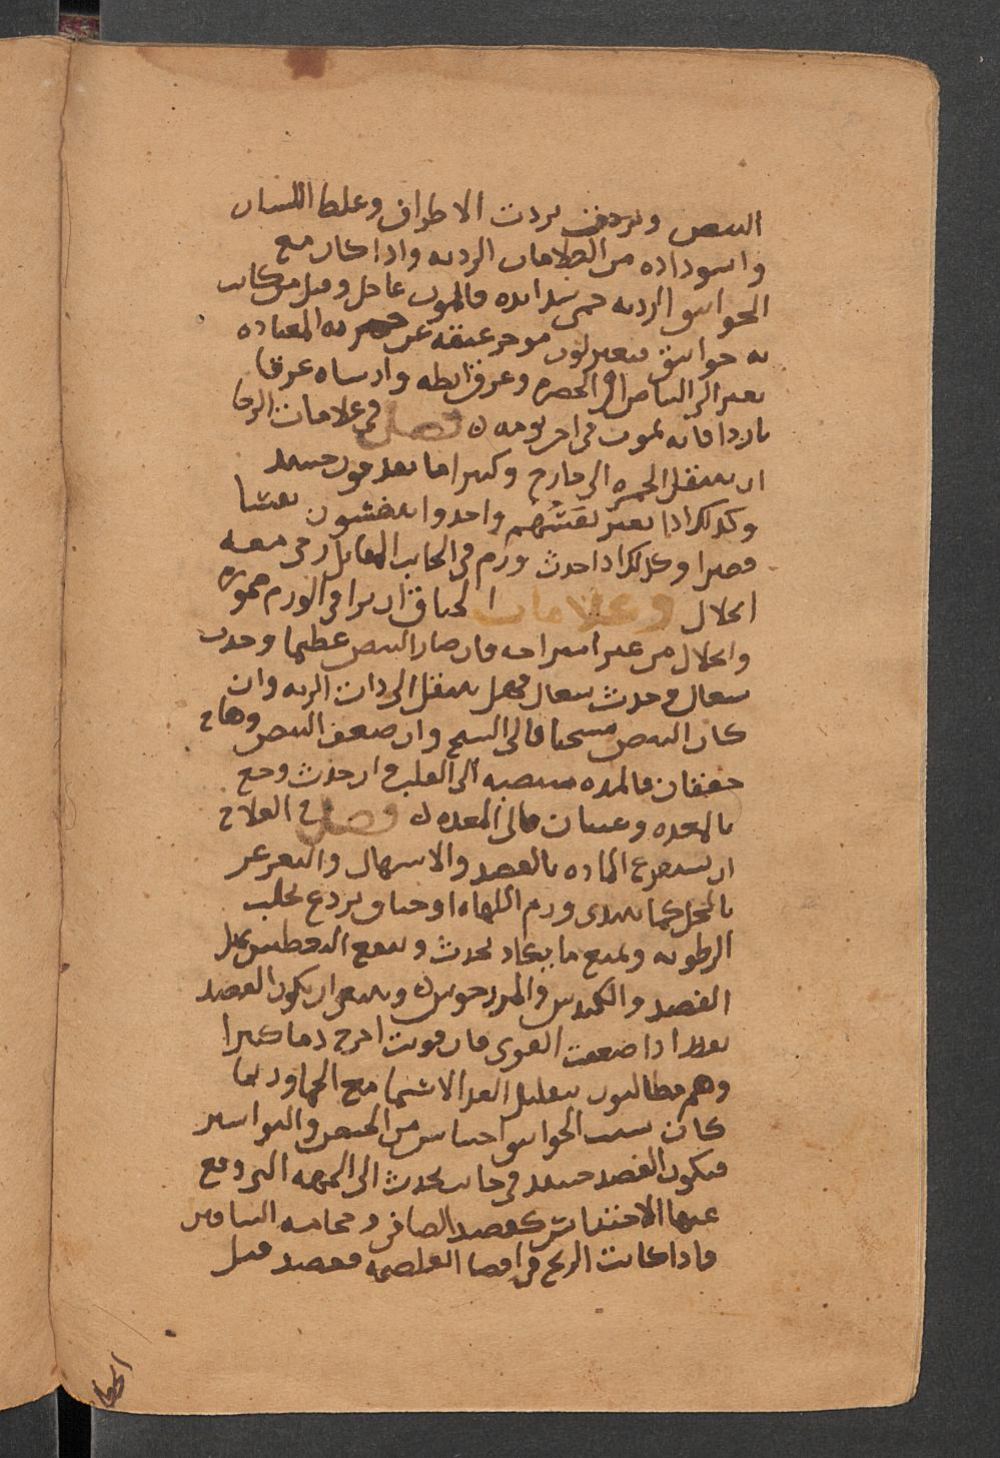 النبض وبردت الاطراف وغلظ اللسان
واسوداده من العلامات الرديه واذا كان مع
الخوانيق الرديه حمى شديده فالموت عاجل وقيل من كانت
به خوانيق فتغير لون موخر عنقه عن المعتاده
تغير الى البياض او الخضره وعرق ابطه وارنباه عرقا
باردا فانه يموت في اخر يومه ه فصل في علامات الرجا
ان تنتقل الحمره الى خارج وكثيرا ما يعد موت حينئذ
وكذلك اذا تغير نفسهم واخذوا يتنفسون نفسا
قصيرا وكذلك اذا حدث ورم في الجانب المقابل رجى معه
انحلال وعلامات الخناق ان يرا في الورم ضمور
وانحلال من غير استراحه فان صار النبض عظيما وحدث
سعال وحدث سعال فهل ينتقل الى ذات الريه وان
كان النبض متشنجا فالى التشنج وان ضعف النبض وهاج
خفقان فالمده منصبه الى القلب وان حدث وجع
بالمعده وغثيان فالى المعده ه فصل في العلاج
ان يستفرغ الماده بالفصد والاسهال والتغرغر
بالخل كما يبتدى ورم اللهاه او خناق يردع تحلب
الرطوبه ويمنع ما يكاد يحدث وينفع التعطيس بمثل
القصد والكندس والمرزجوش ه وينبغى ان يكون الفصد
اذا ضعفت القوى فان قويت اخرج دما كثيرا
وهم مطالبون بتقليل الغدا لاسيما مع الحما وربما
كان سبب الخوانيق احتباس من الحيض والبواسير
فيكون الفصد حينئذ في جانب يحدث الى الجهه التي وقع
عنها الاحتباس كفصد الصافن وحجامه الساقين
فاذا كانت الريح في اقصا الغلصمه فقصد قبل